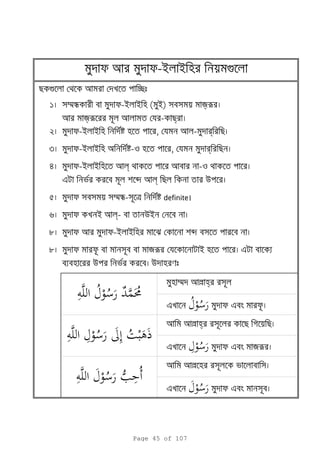 মুদাফ আর মুদাফ-ইলাইহির নিয়মগুলো
ছকগুলো থেকে আমরা দেখতে পাচ্ছিঃ
১। সম্মন্ধকারী বা মুদাফ-ইলাইহি (মুই) সবসময় মাজ়রূর।
আর মাজ়রূরের মূল আলামত যের-কাছ়রা।
২। মুদাফ-ইলাইহি নির্দিষ্ট হতে পারে, যেমন আল-মুদার্‌রিছি।
৩। মুদাফ-ইলাইহি অনির্দিষ্ট-ও হতে পারে, যেমন মুদার্‌রিছিন।
৪। মুদাফ-ইলাইহিতে আল্ থাকতে পারে আবার না-ও থাকতে পারে।
এটা নির্ভর করবে মূল শব্দে আল্ ছিল কিনা তার উপরে।
৫। মুদাফ সবসময় সম্মন্ধ-সূত্রে নির্দিষ্ট definite।
৬। মুদাফ কখনই আল্- বা তানউইন নেবে না।
৮। মুদাফ আর মুদাফ-ইলাইহির মাঝে কোনো শব্দ বসতে পারবে না।
৮। মুদাফ মারফূ বা মানসূব বা মাজরূর যেকোনোটাই হতে পারে। এটা বাক্যে
ব্যবহারের উপর নির্ভর করবে। উদাহরণঃ
مُحَمَّدٌ رَسُوْلُ اللهِ
মুহাম্মদ আল্লাহ্‌র রসূল
এখানে رَسُوْلُ মুদাফ এবং মারফূ।
ذَهَبْتُ إِلَى رَسُوْلِ اللهِ
আমি আল্লাহ্‌র রসূলের কাছে গিয়েছি।
এখানে رَسُوْلِ মুদাফ এবং মাজরূর।
أُحِبُّ رَسُوْلَ اللهِ
আমি আল্লহের রসূলকে ভালোবাসি।
এখানে رَسُوْلَ মুদাফ এবং মানসূব।
Page 45 of 107